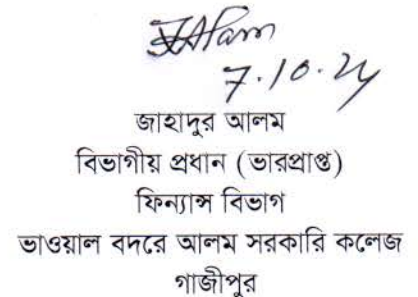 JAlam
7.10.24
জাহাদুর আলম
বিভাগীয় প্রধান (ভারপ্রাপ্ত)
ফিন্যান্স বিভাগ
ভাওয়াল বদরে আলম সরকারি কলেজ
গাজীপুর